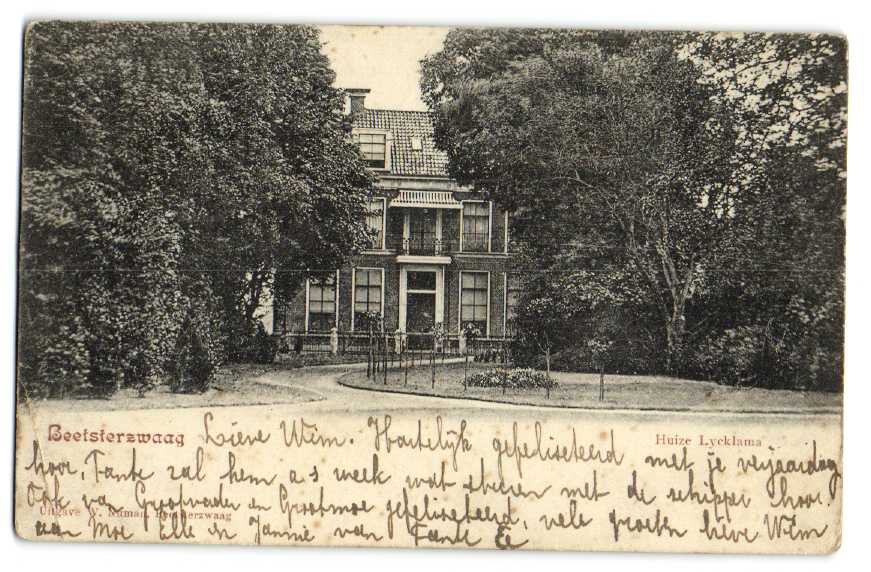 Beetsterzwaag
Huize Lycklama
Lieve Wim. Hartelijk gefeliseteerd met je verjaardag
hoor, Tante zal hem a s week wat sturen met de schipper hoor.
Ook van Grootvader en Grootmoe gefeliseteerd, vele groeten lieve Wim
Uitgave V. Numan, Beetsterzwaag
aan Moe Elle en Jannie van Tante